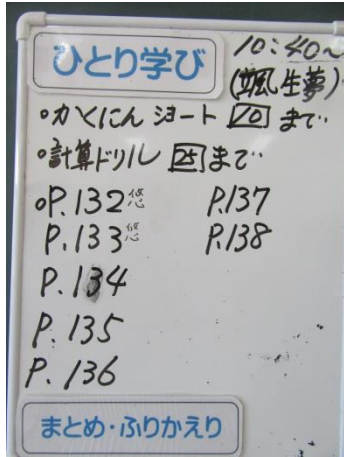 10:40～
ひとり学び
(颯生夢)
・かくにん ショート 10 まで
・計算ドリル 25 まで
・P.132 悠 P.137
P.133 悠 P.138
P.134
P.135
P.136
まとめ・ふりかえり